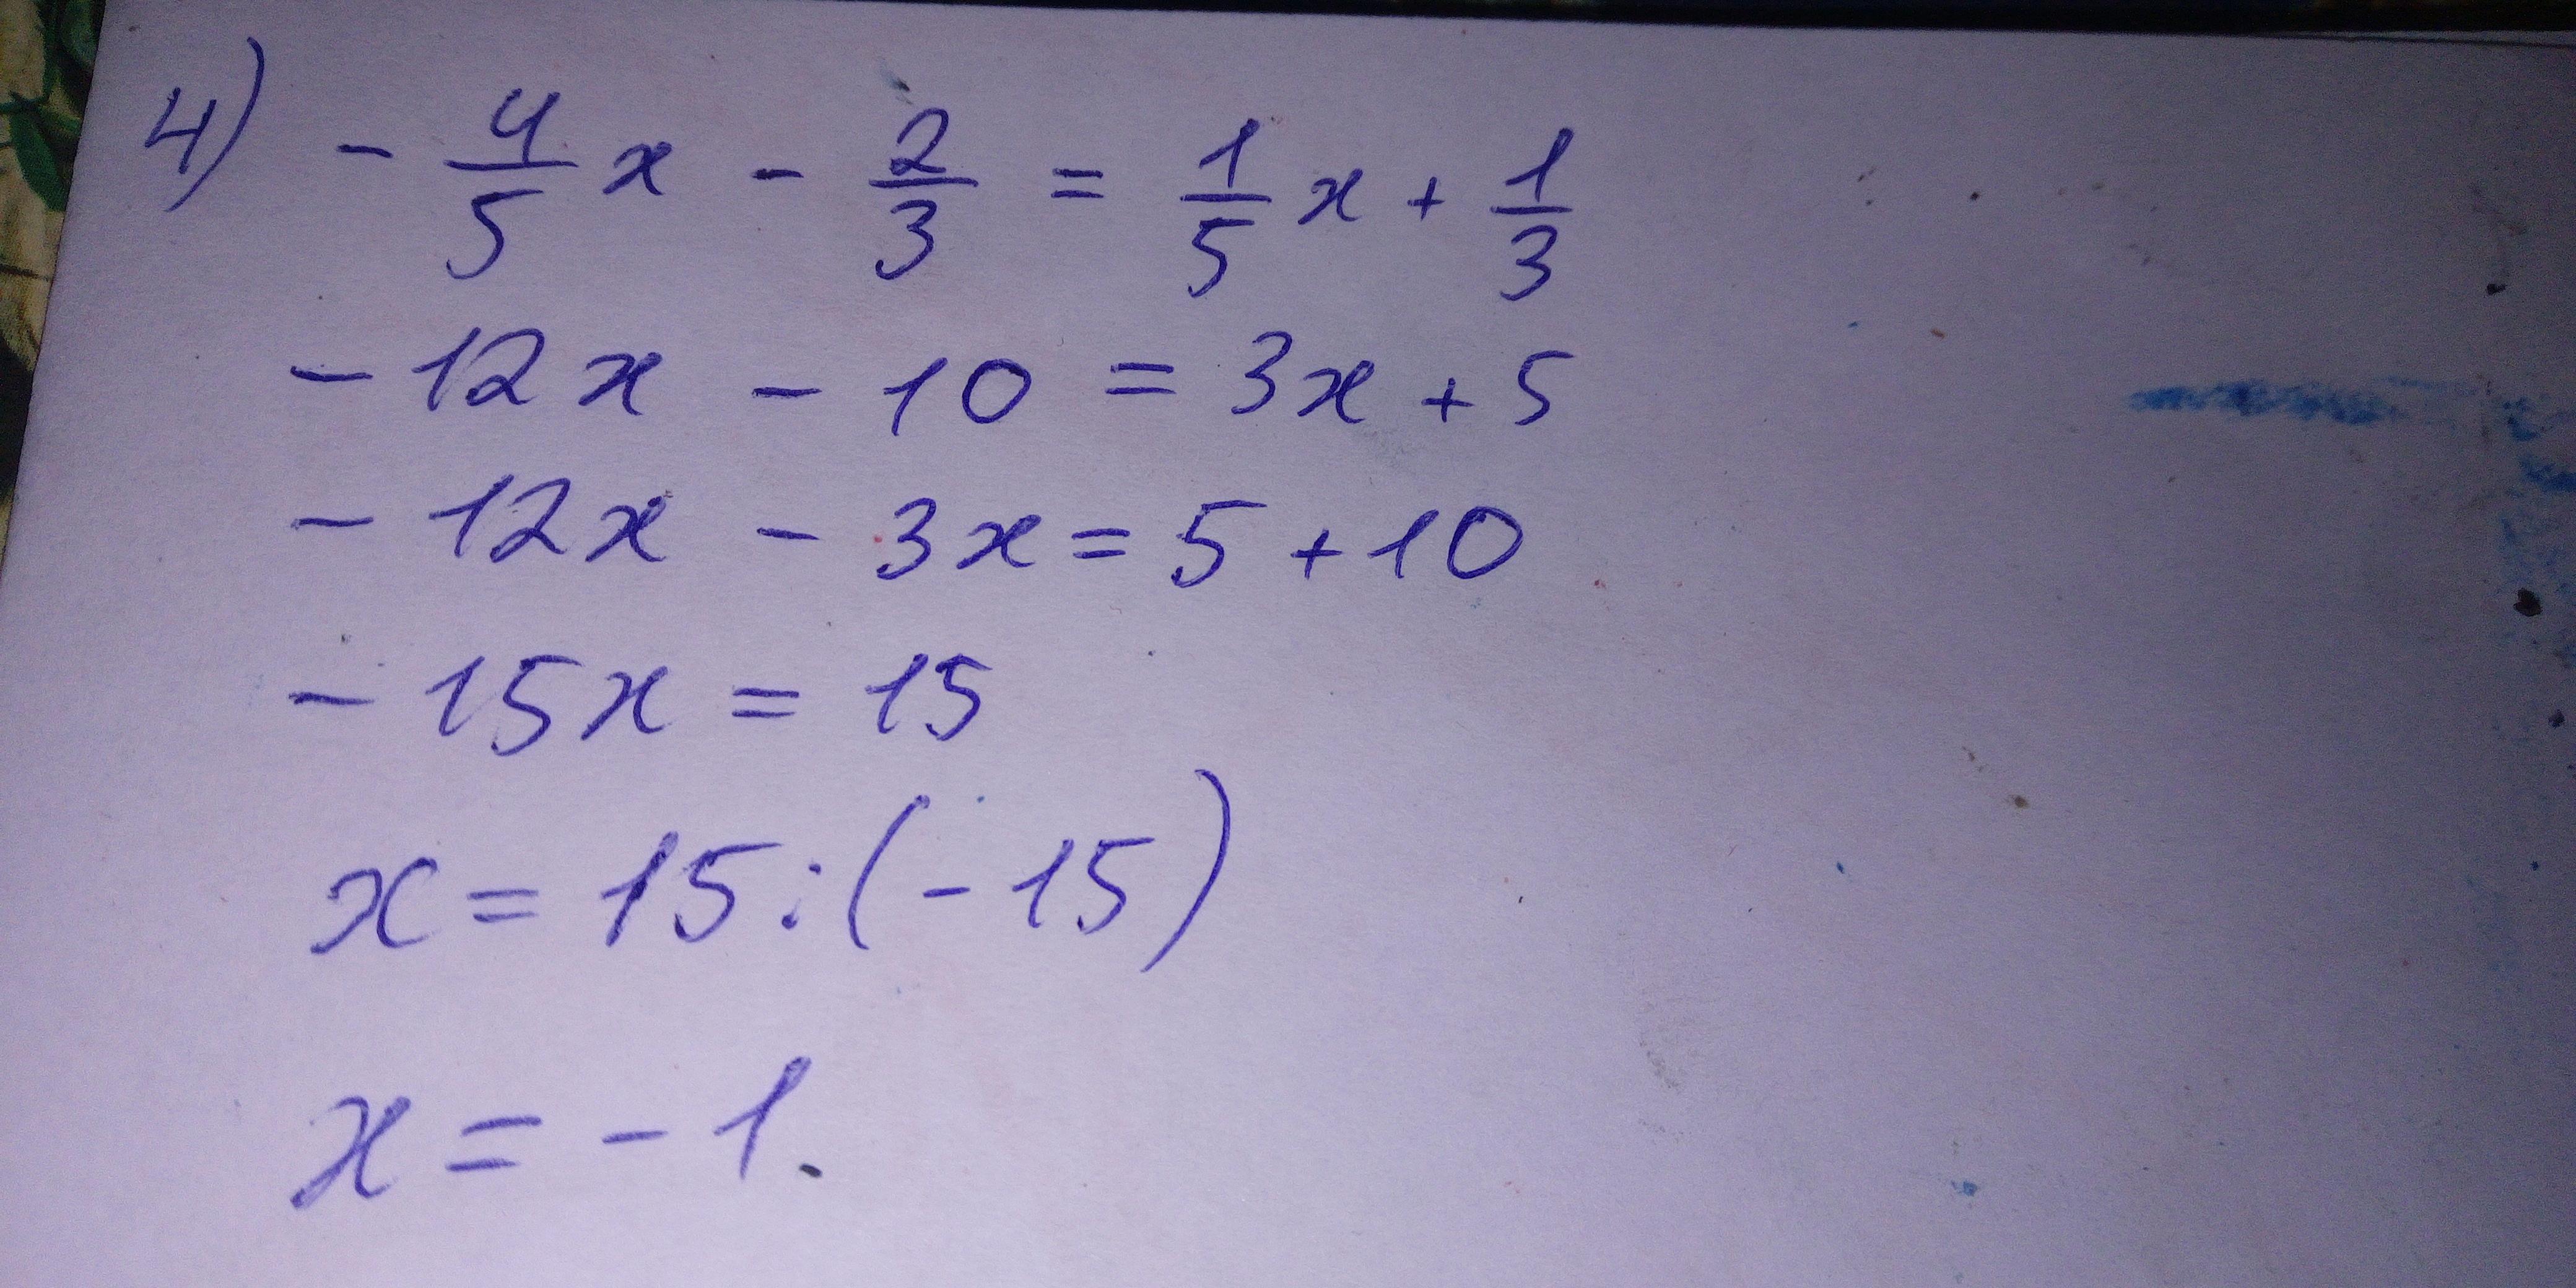 4) - 4/5 x - 2/3 = 1/5 x + 1/3
- 12x - 10 = 3x + 5
- 12x - 3x = 5 + 10
- 15x = 15
x = 15 : (-15)
x = -1.